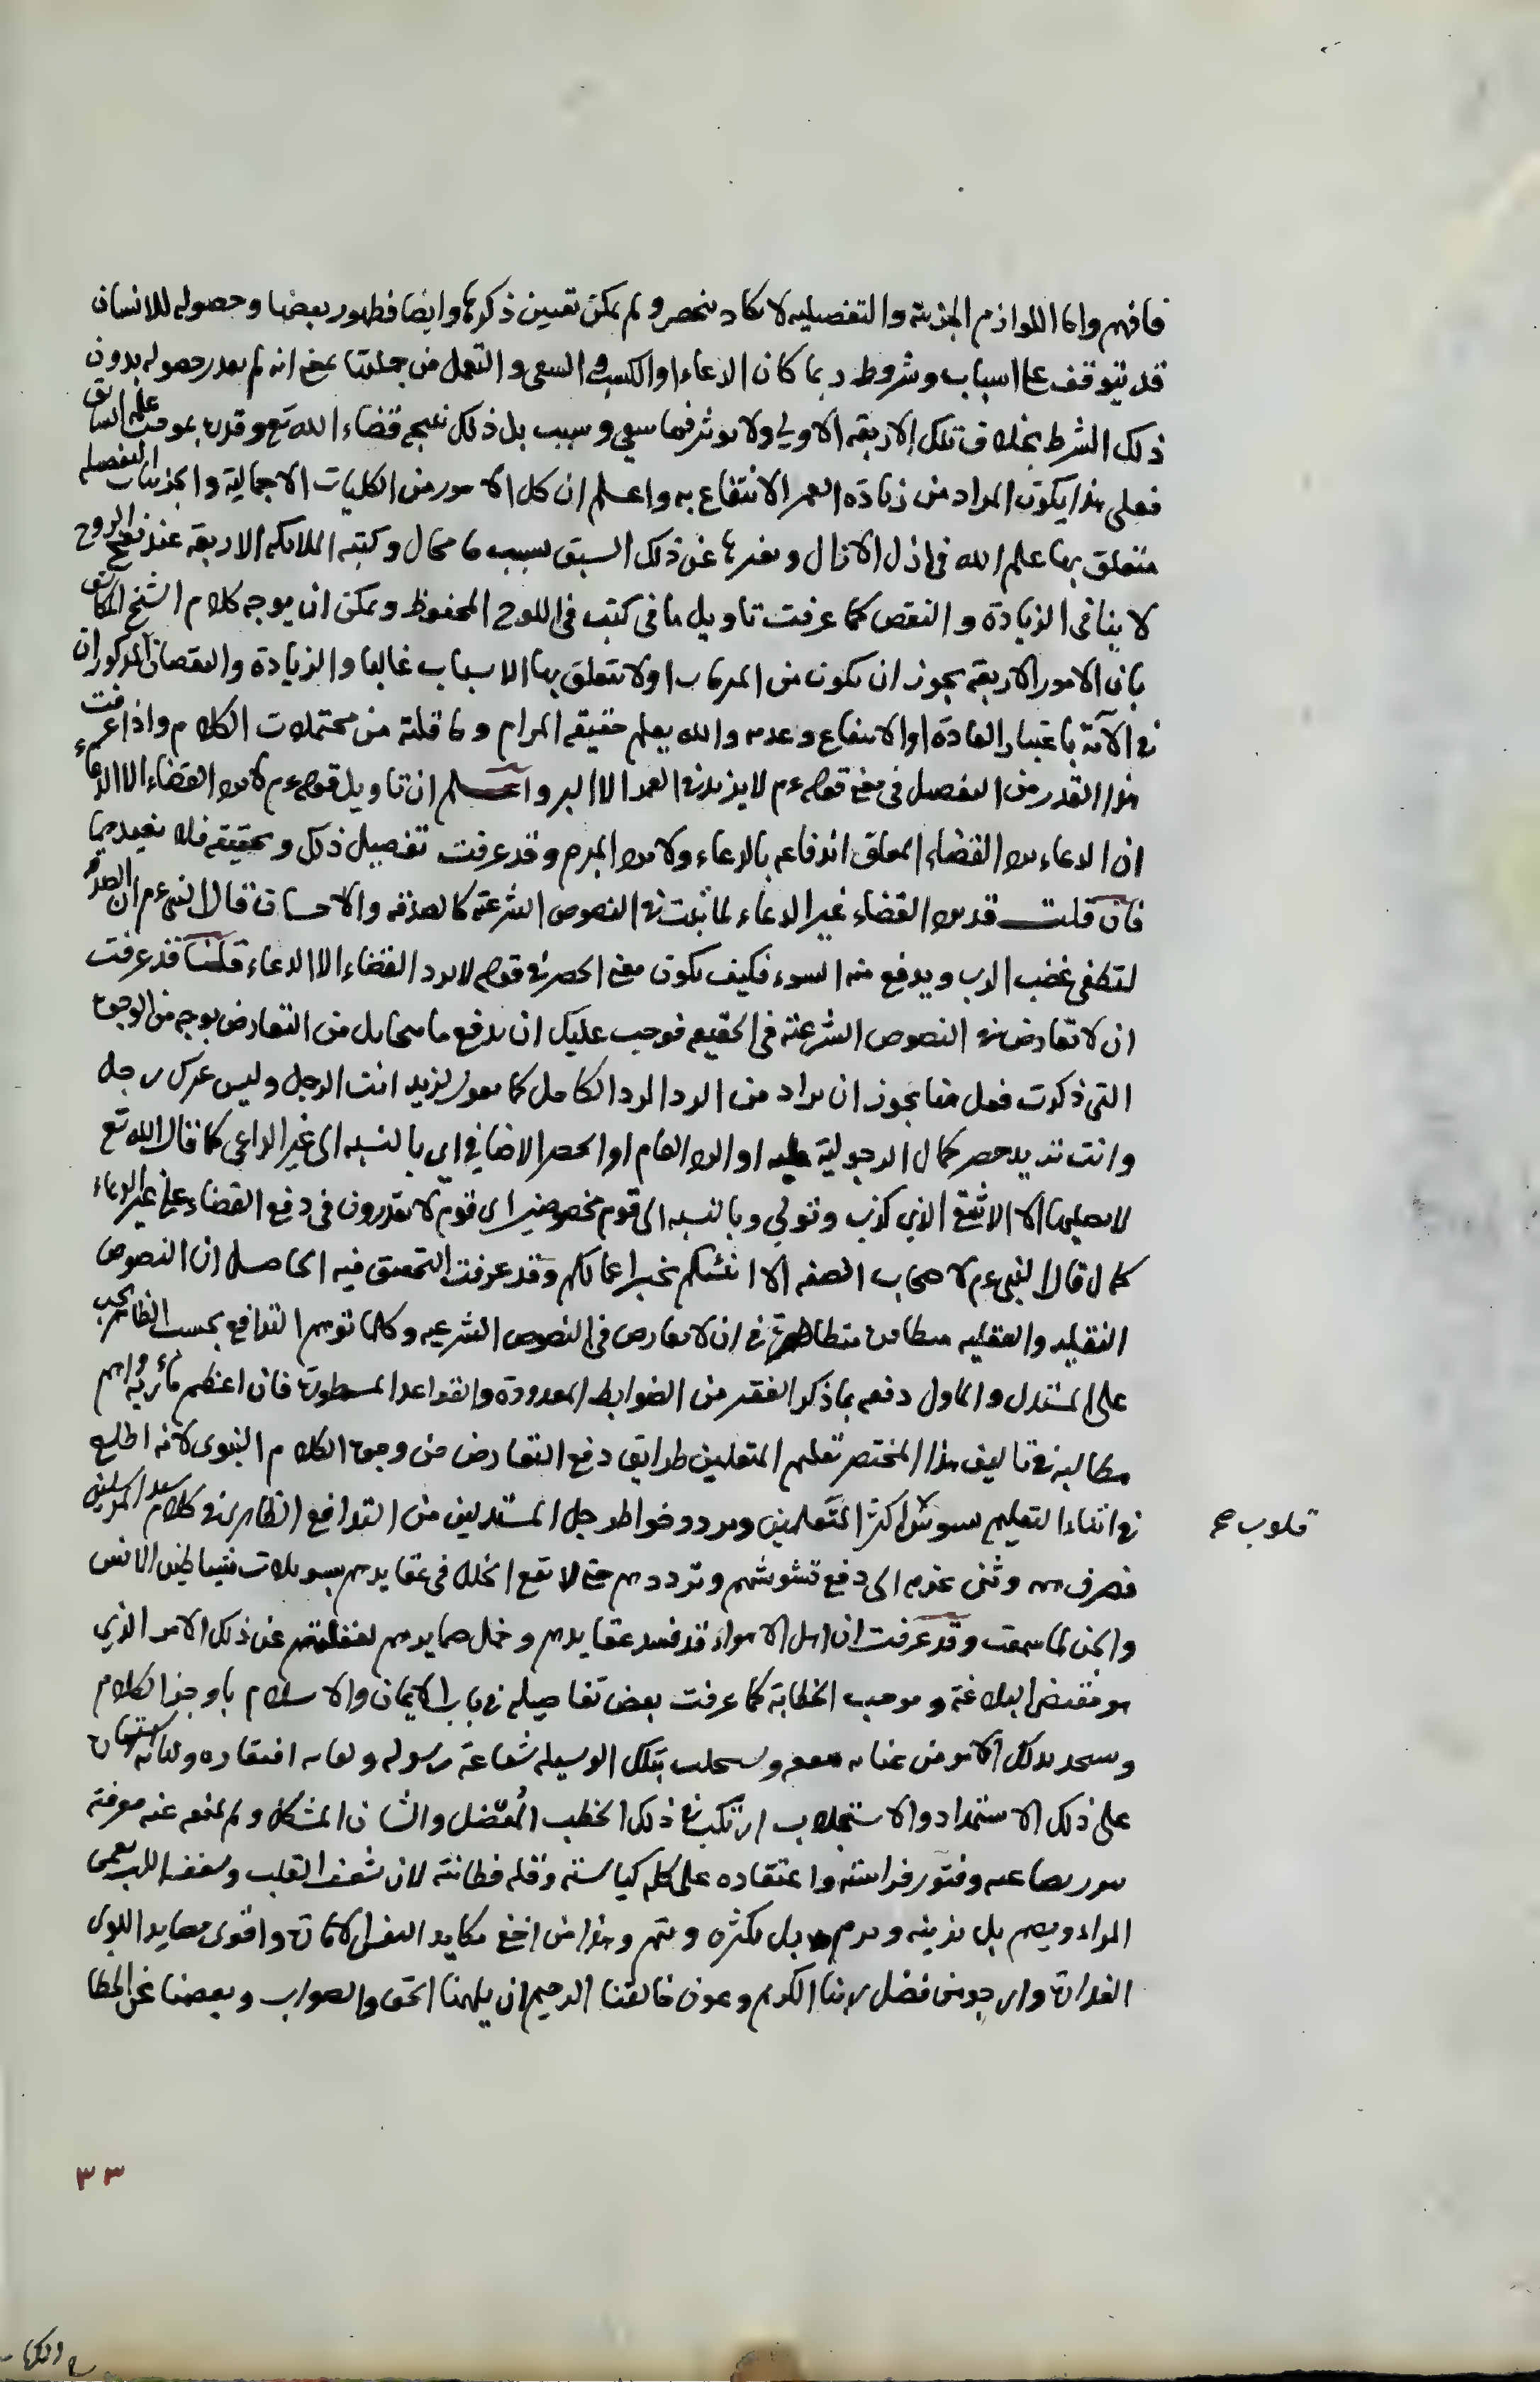 فافهم واما اللوازم الجزئية والتفصيلية لا تكاد تنحصر ولم يمكن تعيين ذكرها وايضا فظهور بعضها وحصوله للانسان
قد يتوقف على اسباب وشروط ربما كان الدعاء او الكسب والسعي و التعمل من جملتها بمعنى انه لم يقدر حصوله بدون
ذلك الشرط بخلاف تلك الاربعة الاولى ولا يوثر فيها سعي وسبب بل ذلك نتيجة قضاء الله تع وقدره بموجب علمه السابق
فعلى هذا يكون المراد من زيادة العمر الانتفاع به واعلم ان كل الامور من الكليات الاجمالية والجزئيات التفصيلية
متعلق بها علم الله في ازل الازال وتغيرها عن ذلك السبق بسبب ما محال وكتبه الملائكة الاربعة عند نفخ الروح
لا ينافي الزيادة والنقص كما عرفت تاويل ما في كتب في اللوح المحفوظ ويمكن ان يوجه كلام الشيخ
بان الامور الاربعة يجوز ان تكون من المبرمات اولا تتعلق بها الاسباب غالبا والزيادة والنقصان المذكوران
في الآية باعتبار العادة او الانتفاع وعدمه والله يعلم حقيقة المرام وما قلته من محتملات الكلام واذا عرفت
هذا القدر من التفصيل في معنى قوله عم لا يزيد في العمر الا البر واعلم ان تاويل قوله عم لا يرد القضاء الا الدعاء
ان الدعاء يرد القضاء المعلق اندفاعه بالدعاء ولا يرد المبرم وقد عرفت تفصيل ذلك وتحقيقه فلا نعيدهما
فان قلت قد يرد القضاء غير الدعاء لما ثبت في النصوص الشرعية كالصدقة والاحسان قال النبي عم ان الصدقة
لتطفي غضب الرب ويدفع منه السوء فكيف يكون معنى الحصر في قوله لا يرد القضاء الا الدعاء قلنا قد عرفت
ان لا تعارض في النصوص الشرعية في الحقيقة فوجب عليك ان تدفع ما يتخايل من التعارض بوجه من الوجوه
التي ذكرت فعل هنا يجوز ان يراد من الرد الرد الكامل كما تقول لزيد انت الرجل وليس غيرك رجل
وانت تريد حصر كمال الرجولية عليه او الرد العام او الحصر الاضافي اي بالنسبة الى غير الداعي كما قال الله تع
لا يصليها الا الاشقى الذي كذب وتولى وبالنسبة الى قوم مخصوصين اي قوم لا يقدرون في دفع القضاء على غير الدعاء
كما قال النبي عم لاصحاب الصفه الا انبئكم بخير اعمالكم وقد عرفت التحقيق فيه الحاصل ان النصوص
النقلية والعقلية متظاهرة في ان لا تعارض في النصوص الشرعية وكلما توهم التدافع بحسب الظاهر يجب
على المستدل والماول دفعه بما ذكر الفقير من الضوابط المعدودة والقواعد المسطورة فان اعظم مآربه واهم
مطالبه في تاليف هذا المختصر تعليم المتعلمين طرايق دفع التعارض من وجوه الكلام النبوي لانه اطلع
في اثناء التعليم تشوش اكثر المتعلمين وتردد خواطر جل المستدلين من التدافع الظاهر في كلام سيد المرسلين
قلوب صح
فصرف همه وثنى عزمه الى دفع تشوشهم وترددهم حتى لا تقع الخلل في عقايدهم بتسويلات شياطين الانس
والجن لما سمعت وقد عرفت ان اهل الاهواء قد فسد عقايدهم وخال صمايدهم لغفلتهم عن ذلك الامر الذي
هو مقتضى البلاغة وموجب الخطابة كما عرفت بعض تفاصيله في باب الايمان والاسلام باوجز الكلام
بذلك الامر من عناية ويستجلب بتلك الوسيلة شفاعة رسوله
على ذلك الاستمداد والاستجلاب ارتكب في ذلك الخطب المعضل والشان المشكل ولم يمنعه عنه معرفة
وفتور فراسته واعتقاده على كلة كياسته وقلة فطانته لان شغف القلب وشغفه اللب يعمي
المراد ويصم بل يزينه بل يكثره ويتمم وهذا من اخفى مكايد النفس الامارة واقوى مصايد الهوى
الغدارة وارجو من فضل ربنا الكريم وعون خالقنا الرحيم ان يلهمنا الحق والصواب ويعصمنا عن الخطا
٣٣